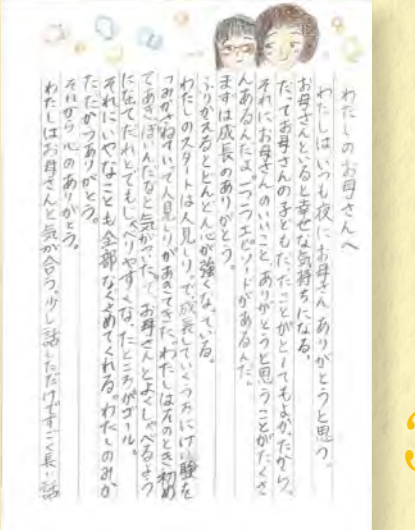 わたしのお母さんへ
わたしはいつも夜に、お母さんありがとうと思う。
お母さんといると幸せな気持ちになる。
だってお母さんの子どもだったことがとってもよかったから。
それにお母さんのいいこと、ありがとうと思うことがたくさ
んあるんだよ。一つ一つエピソードがあるんだ。
まずは成長のありがとう。
ふりかえるとどんどん心が強くなっている。
わたしのスタートは人見しりで、成長していくうちにけい験を
つみかさねていて人見しりがあきてきた。わたしはそのとき初め
てあきっぽいんだなと気がついた。で、お母さんとよくしゃべるよう
になってだれとでもしゃべりやすくなったところがゴール。
それにいやなことも全部なぐさめてくれる。わたしのみか
ただからありがとう。
それから心のありがとう。
わたしはお母さんと気が合う。少し話しただけですごく長い話